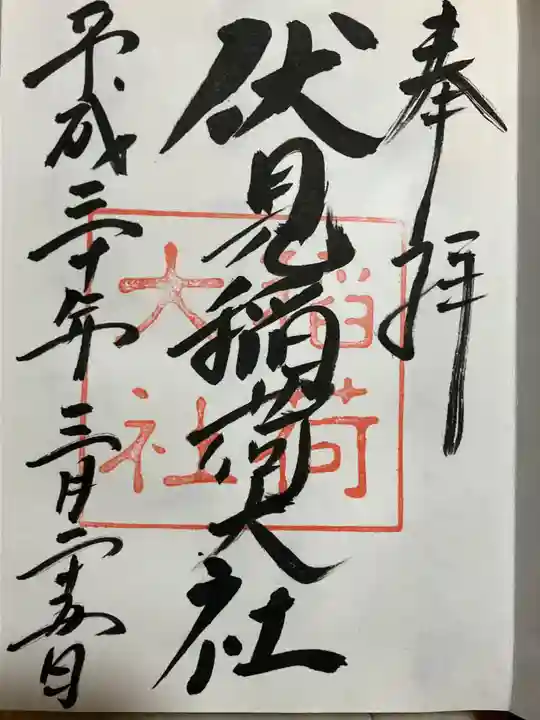 奉拝
伏見稲荷大社
稲荷
大社
平成三十年三月二十五日